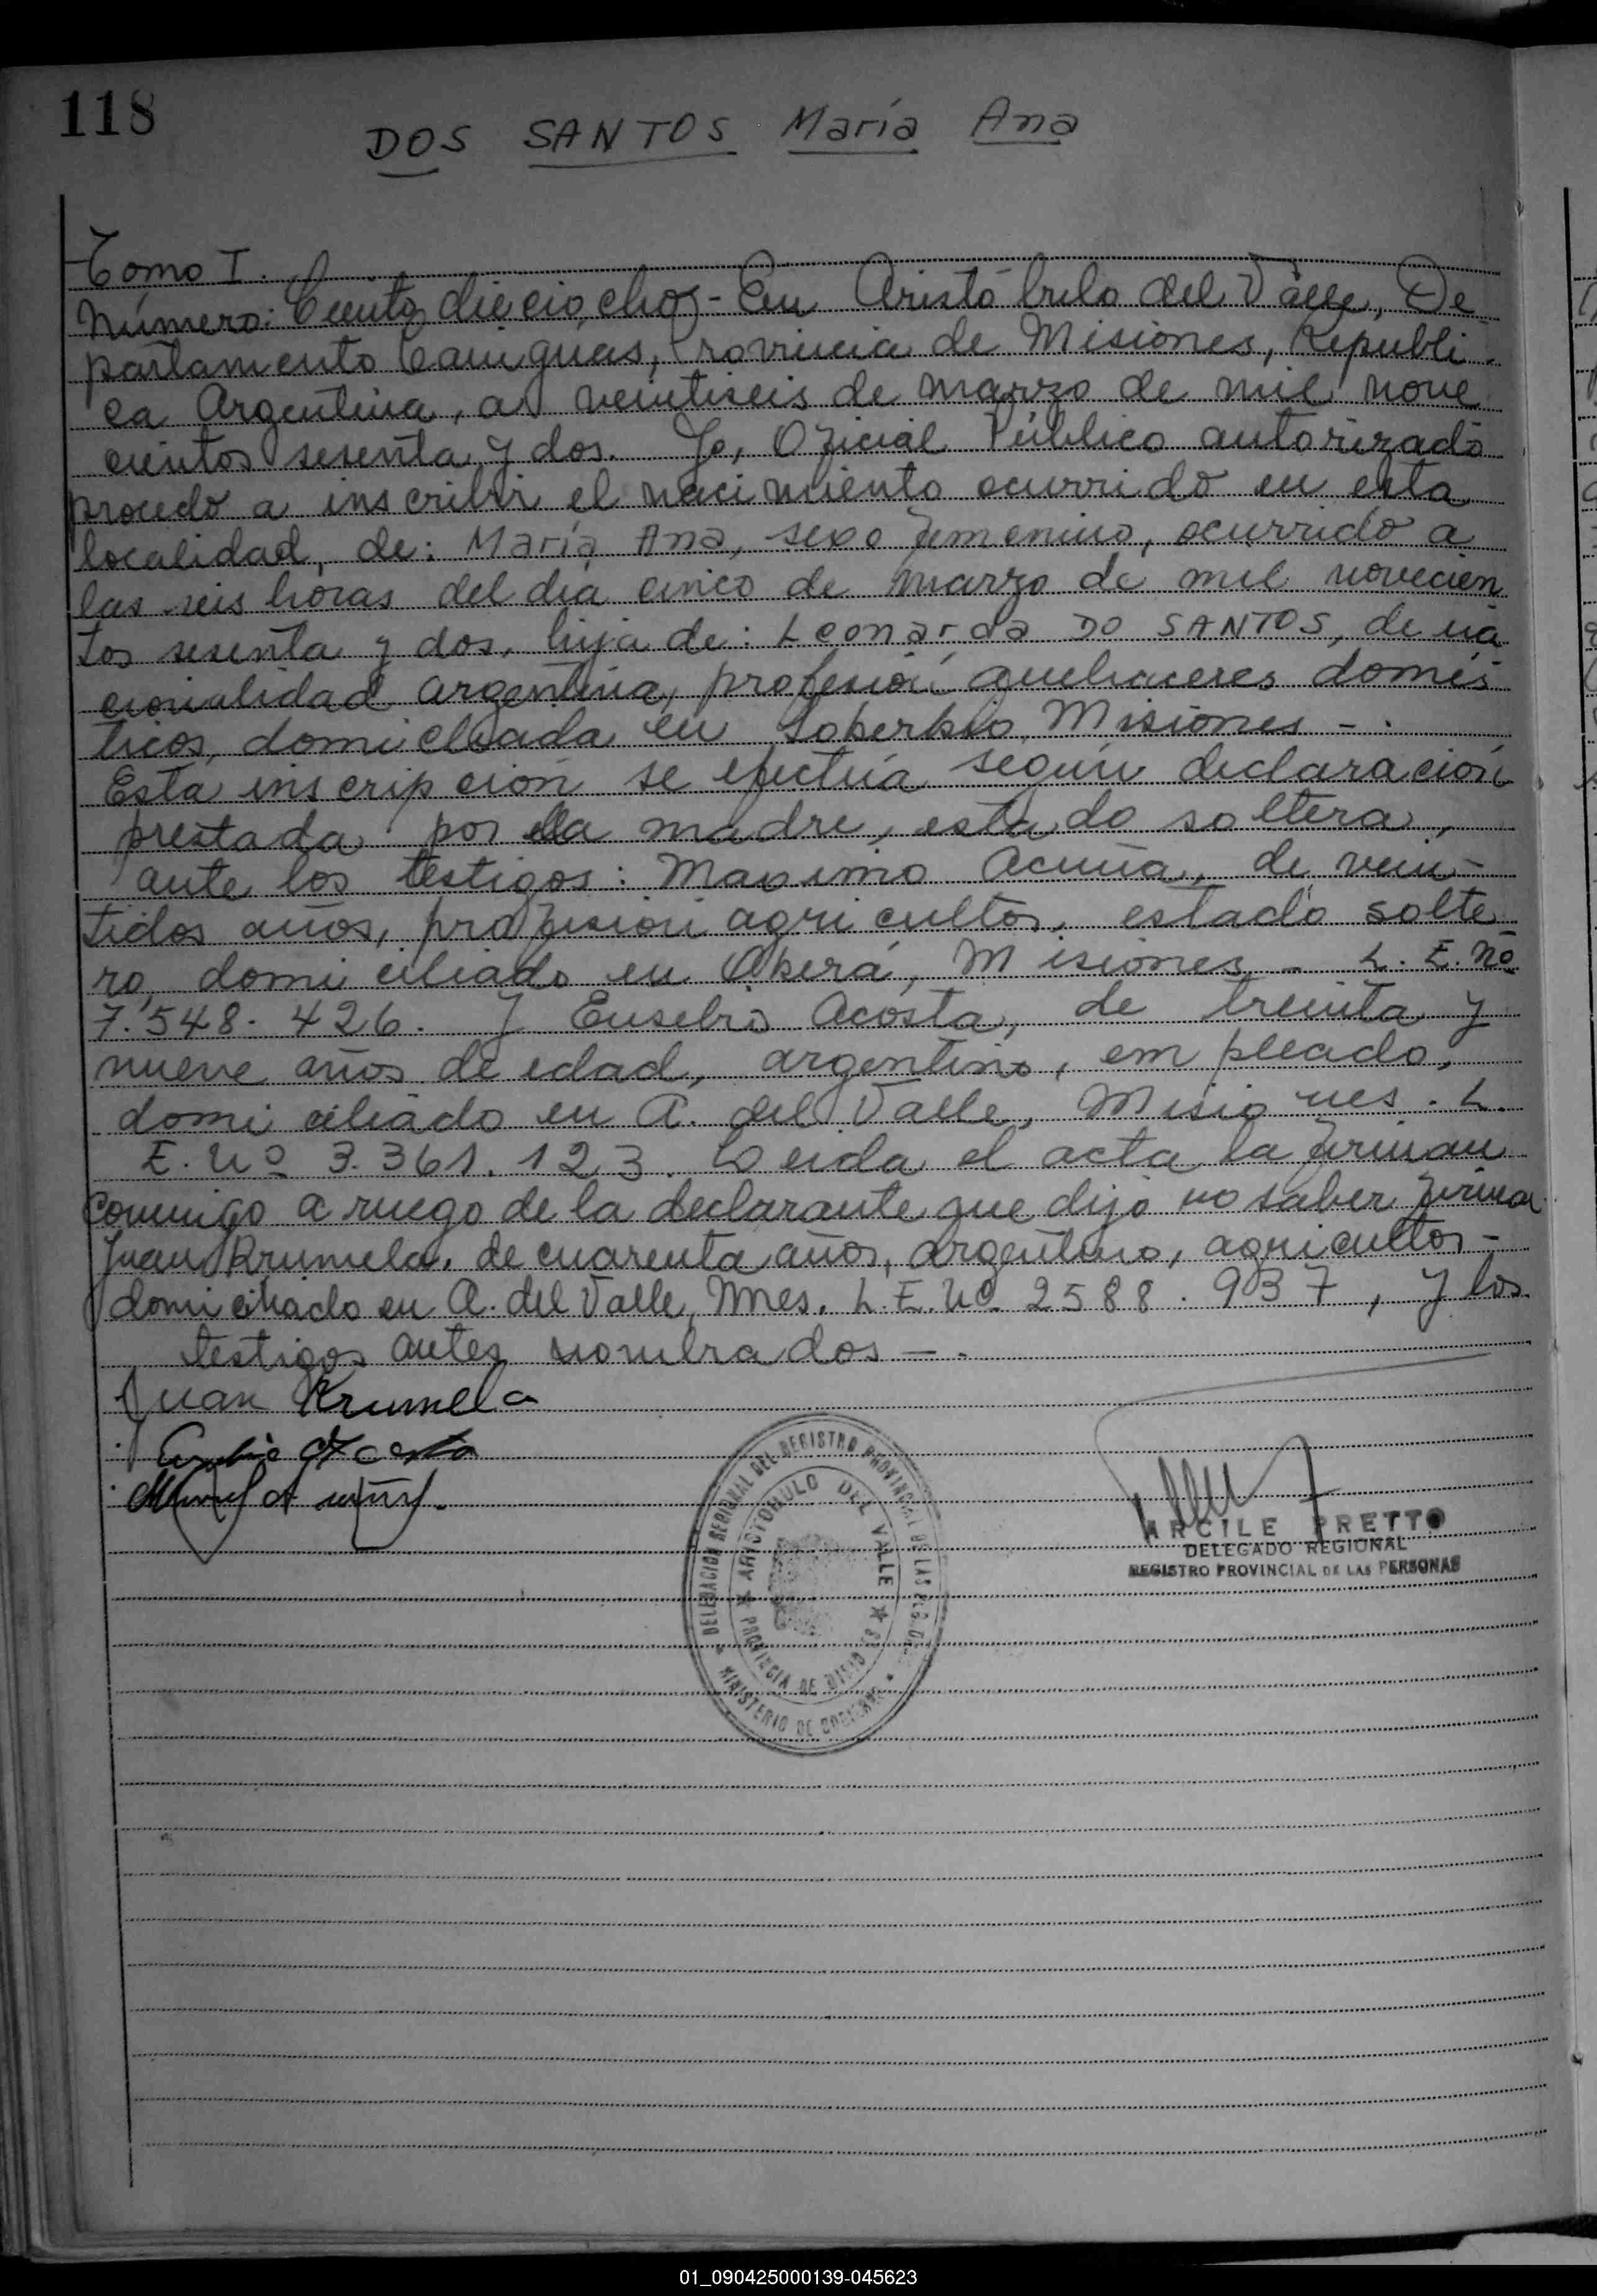 118
DOS SANTOS María Ana
Tomo I.
Número: Ciento dieciocho - En Aristóbulo del Valle, De
partamento Cainguas, Provincia de Misiones, Republi
ca Argentina, a veintiseis de marzo de mil nove
cientos sesenta y dos. Yo, Oficial Público autorizado
procedo a inscribir el nacimiento ocurrido en esta
localidad, de: María Ana, sexo femenino, ocurrido a
las seis horas del día cinco de marzo de mil novecien
tos sesenta y dos, hija de: Leonarda DO SANTOS, de na
cionalidad argentina, profesión quehaceres domés
ticos, domiciliada en Soberbio, Misiones - .
Esta inscripción se efectúa según declaración
prestada por la madre, estado soltera,
ante los testigos: Maximo Acuña, de vein-
tidos años, profesión agricultor, estado solte
ro, domiciliado en Oberá, Misiones - L. E. Nº
7.548.426. Y Eusebio Acosta, de treinta y
nueve años de edad, argentino, empleado,
domiciliado en A. del Valle, Misiones. L.
E. Nº 3.361.123. Leida el acta la firman
conmigo a ruego de la declarante que dijo no saber firmar
Juan Krumela, de cuarenta años, argentino, agricultor -
domiciliado en A. del Valle, Mnes. L.E. Nº 2588.937, y los
testigos antes nombrados - .
Juan Krumela
Eusebio Acosta
DELEGACION REGIONAL DEL REGISTRO PROVINCIAL DE LAS
ARISTOBULO DEL VALLE
PROVINCIA DE MISIONES
MINISTERIO DE GOBIERNO
ARCILE PRETTO
DELEGADO REGIONAL
REGISTRO PROVINCIAL DE LAS PERSONAS
01_090425000139-045623